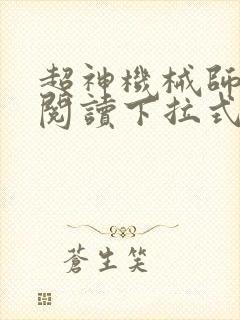 超神機械師
閱讀下拉式
蒼生笑